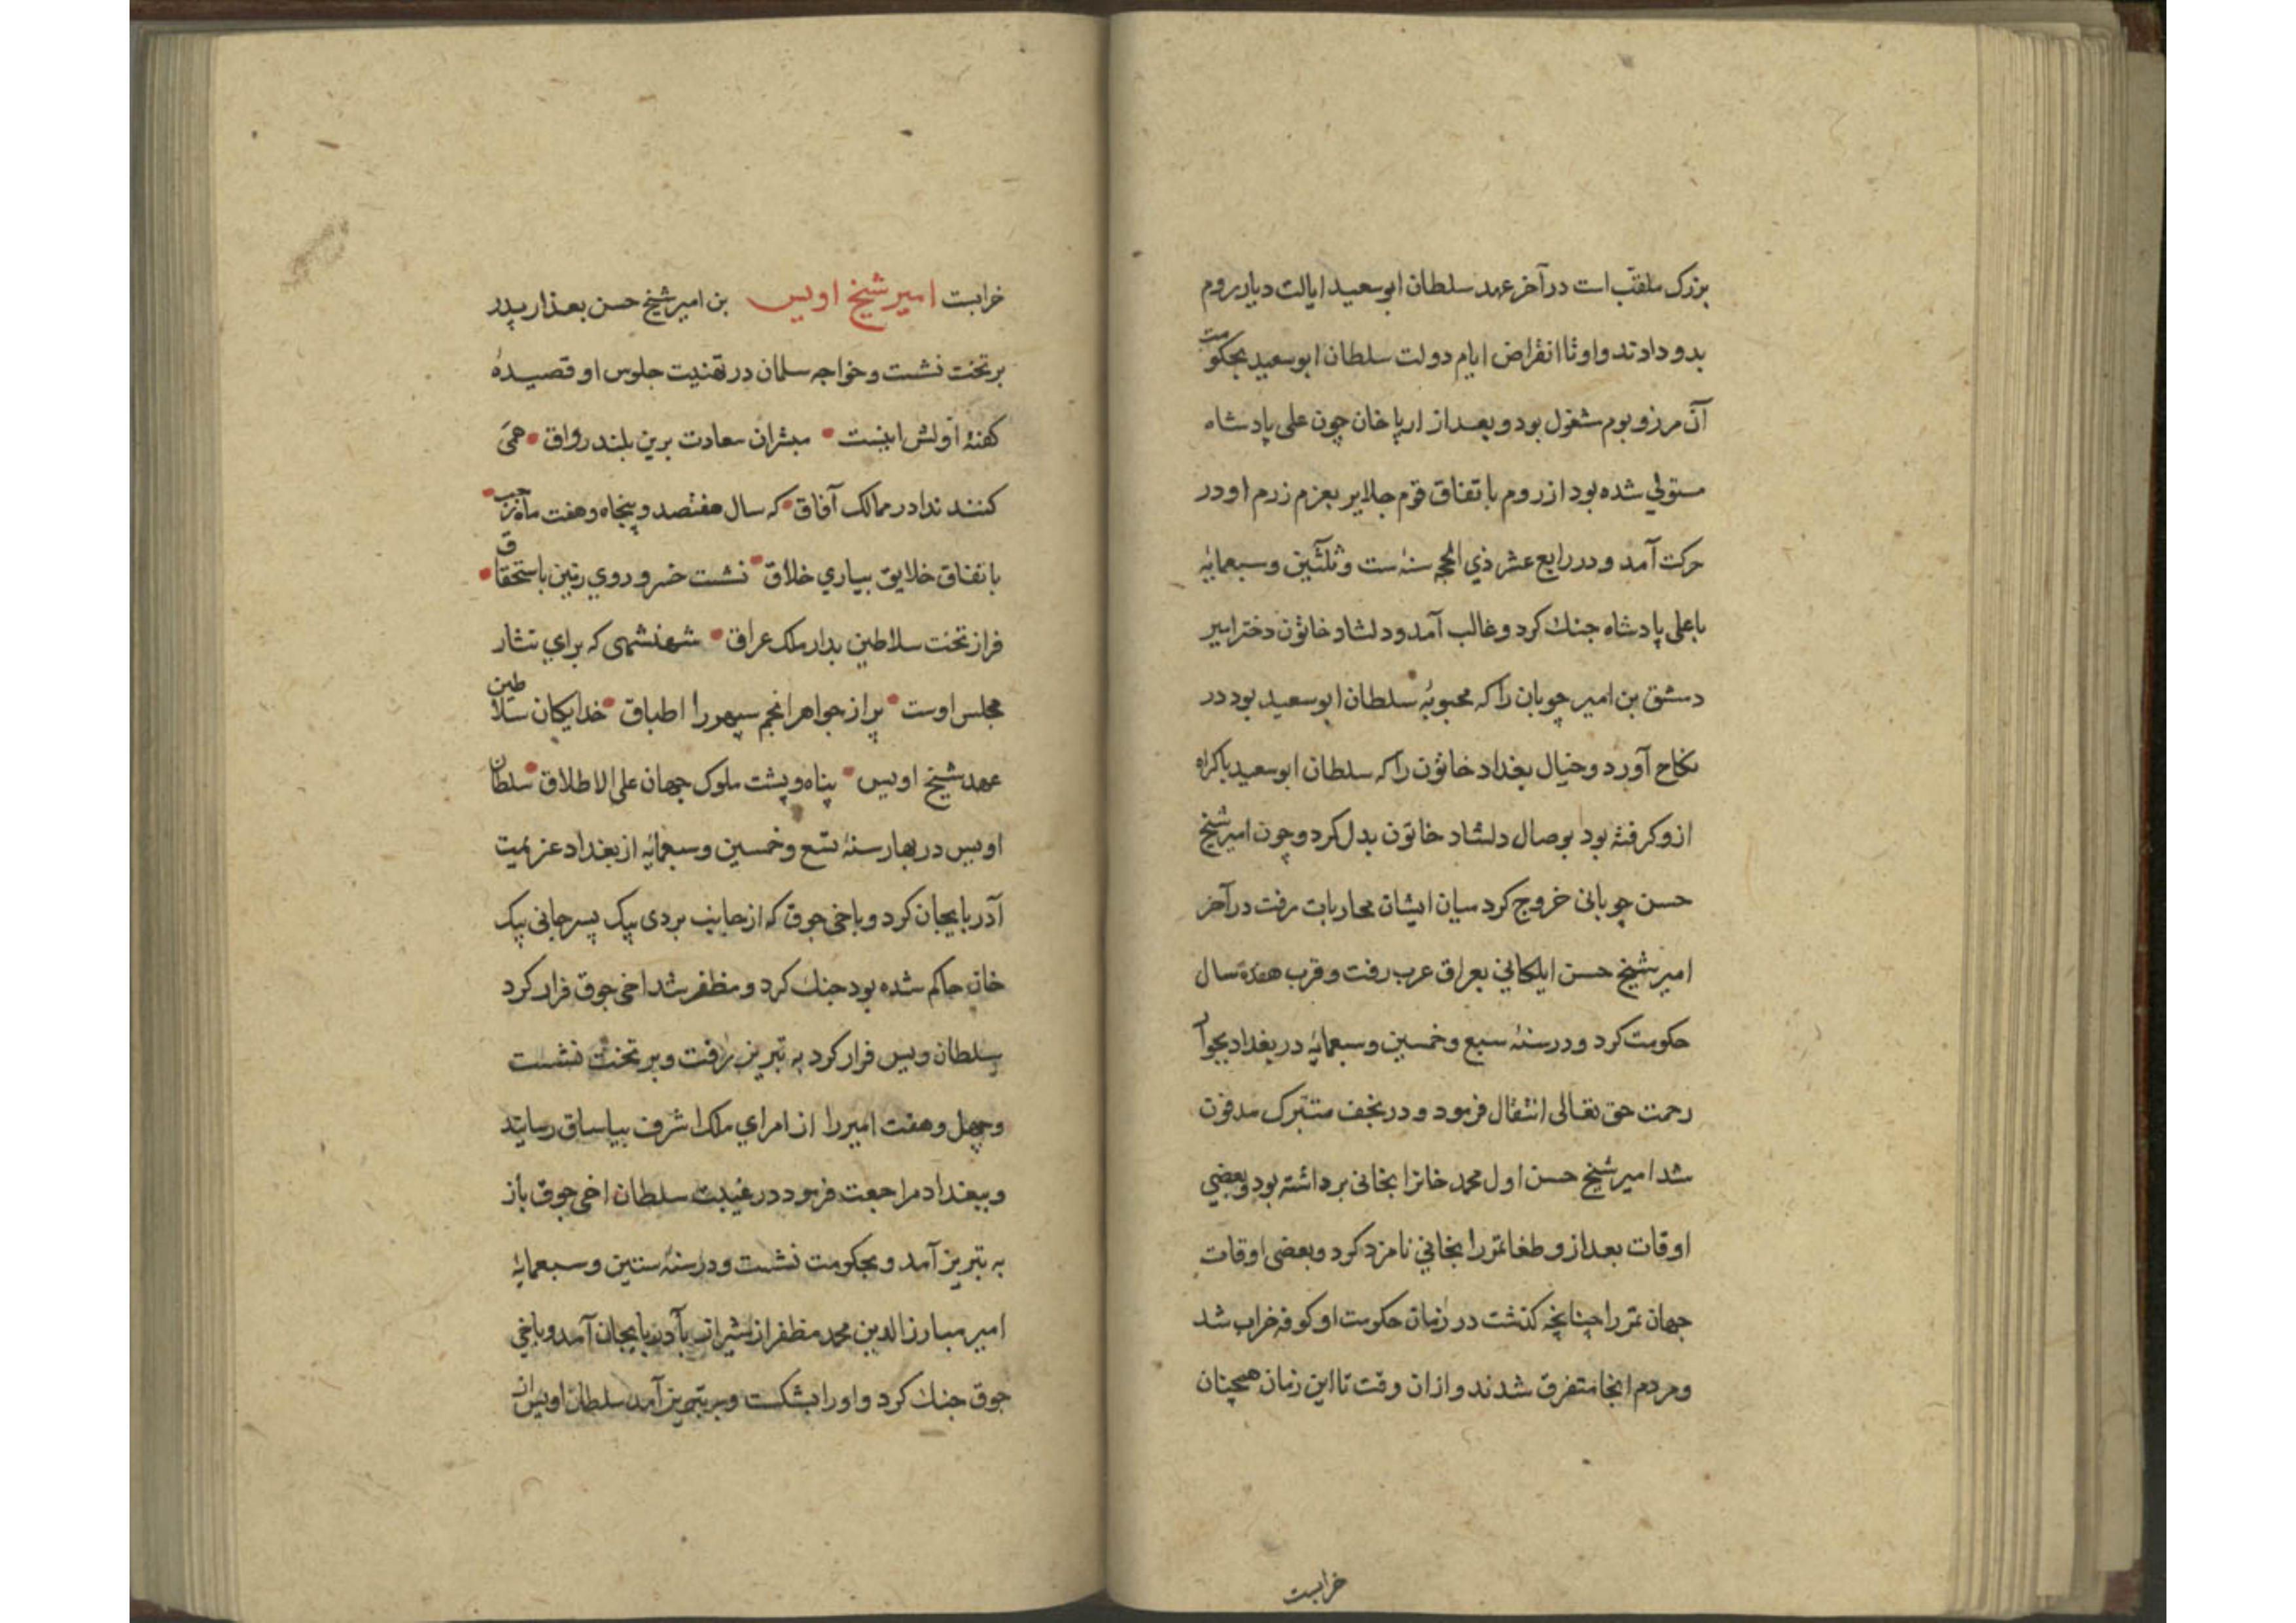 بزرک ملقب است در آخر عهد سلطان ابو سعید ایالت دیار روم
بدو دادند و او تا انقراض ایام دولت سلطان ابو سعید بحکومت
آن مرز و بوم مشغول بود و بعد از ارپا خان چون علی پادشاه
مستولي شده بود از روم باتفاق قوم جلایر بعزم رزم او در
حرکت آمد و در رابع عشر ذي الحجه سنه ست و ثلثین و سبعمایه
با علی پادشاه جنك کرد و غالب آمد و دلشاد خاتون دختر امیر
دمشق بن امیر چوبان را که محبوبهٔ سلطان ابو سعید بود در
نکاح آورد و خیال بغداد خاتون را که سلطان ابو سعید باکراه
ازو کرفته بود بوصال دلشاد خاتون بدل کرد و چون امیر شیخ
حسن چوبانی خروج کرد میان ایشان محاربات رفت در آخر
امیر شیخ حسن ایلکاني بعراق عرب رفت و قرب هفده سال
حکومت کرد و در سنه سبع و خمسین و سبعمایه در بغداد بجوار
رحمت حق تعالی انتقال فرمود و در نجف متبرک مدفون
شد امیر شیخ حسن اول محمد خانرا بخانی برداشته بود و بعضي
اوقات بعد ازو طغاتمر را بخاني نامزد کرد و بعضی اوقات
جهان تمر را چنانچه کذشت در زمان حکومت او کوفه خراب شد
و مردم انجا متفرق شدند و ازان وقت تا این زمان همچنان
خرابست
خرابست امیر شیخ اویس بن امیر شیخ حسن بعد از پدر
بر تخت نشست و خواجه سلمان در تهنیت جلوس او قصیدهٔ
کفته اولش اینست مبشران سعادت برین بلند رواق همی
کنند ندا در ممالک آفاق که سال هفتصد و پنجاه و هفت ماه رجب
باتفاق خلایق بیاري خلاق نشست خسرو روي زمین باستحقاق
فراز تخت سلاطین بدار ملک عراق شهنشهی که براي نثار
مجلس اوست پر از جواهر انجم سپهر را اطباق خدایکان سلاطین
عهد شیخ اویس پناه و پشت ملوک جهان علی الاطلاق سلطان
اویس در بهار سنهٔ تسع و خمسین و سبعمایه از بغداد عزیمت
آذربایجان کرد و با خی جوق که از جانب بردی بیک پسر جانی بیک
خان حاکم شده بود جنك کرد و مظفر شد اخی جوق فرار کرد
سلطان ویس فرار کرد به تبریز رفت و بر تخت نشست
و چهل و هفت امیر را از امراي ملک اشرف بیاساق رسانید
و ببغداد مراجعت فرمود در غیبت سلطان اخی جوق باز
به تبریز آمد و بحکومت نشست و در سنه ستین و سبعمایه
امیر مبارز الدین محمد مظفر از شیراز بآذربایجان آمد و با خي
جوق جنك کرد و او را بشکست و به تبریز آمد سلطان اویس از